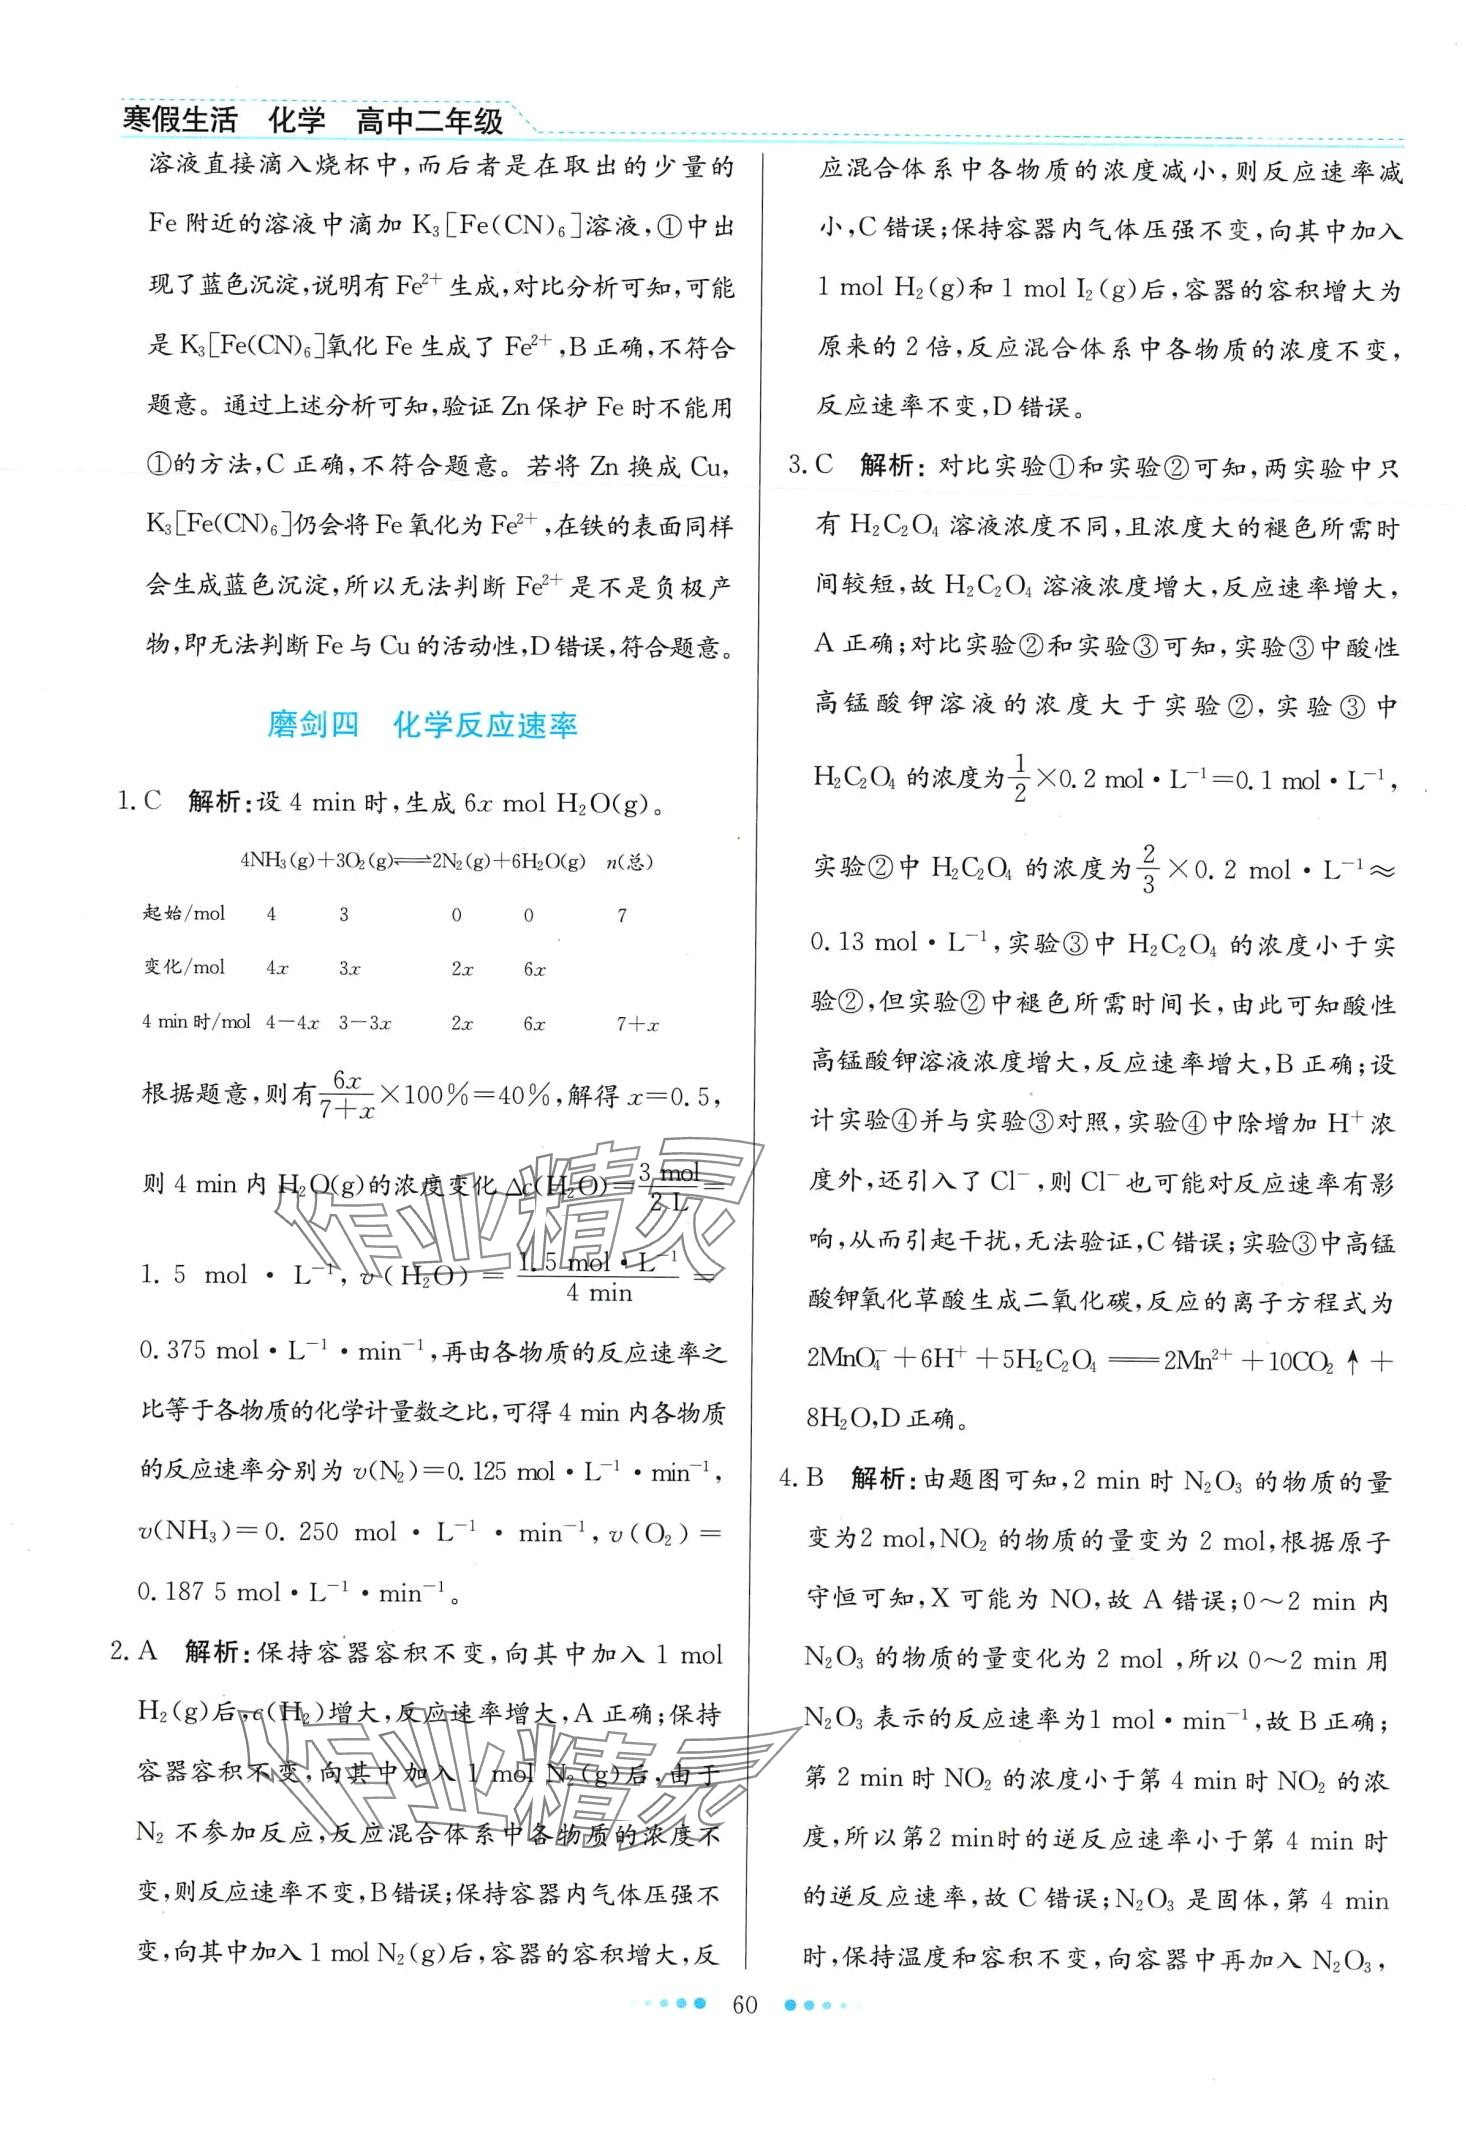 寒假生活 化学 高中二年级
溶液直接滴入烧杯中,而后者是在取出的少量的
Fe 附近的溶液中滴加 K₃[Fe(CN)₆]溶液,①中出
现了蓝色沉淀,说明有 Fe²⁺ 生成,对比分析可知,可能
是 K₃[Fe(CN)₆]氧化 Fe 生成了 Fe²⁺,B 正确,不符合
题意。通过上述分析可知,验证 Zn 保护 Fe 时不能用
①的方法,C 正确,不符合题意。若将 Zn 换成 Cu,
K₃[Fe(CN)₆]仍会将 Fe 氧化为 Fe²⁺,在铁的表面同样
会生成蓝色沉淀,所以无法判断 Fe²⁺ 是不是负极产
物,即无法判断 Fe 与 Cu 的活动性,D 错误,符合题意。
磨剑四 化学反应速率
1. C 解析:设 4 min 时,生成 6x mol H₂O(g)。
4NH₃(g)+3O₂(g)⇌2N₂(g)+6H₂O(g) n(总)
起始/mol 4 3 0 0 7
变化/mol 4x 3x 2x 6x
4 min 时/mol 4－4x 3－3x 2x 6x 7＋x
根据题意,则有 6x/(7+x) ×100%=40%,解得 x=0.5,
则 4 min 内 H₂O(g)的浓度变化 Δc(H₂O)= 3 mol/2 L =
1.5 mol·L⁻¹, v(H₂O) = 1.5 mol·L⁻¹/4 min =
0.375 mol·L⁻¹·min⁻¹,再由各物质的反应速率之
比等于各物质的化学计量数之比,可得 4 min 内各物质
的反应速率分别为 v(N₂)=0.125 mol·L⁻¹·min⁻¹,
v(NH₃)=0.250 mol·L⁻¹·min⁻¹, v(O₂)=
0.187 5 mol·L⁻¹·min⁻¹。
2. A 解析:保持容器容积不变,向其中加入 1 mol
H₂(g)后,c(H₂)增大,反应速率增大,A 正确;保持
容器容积不变,向其中加入 1 mol N₂(g)后,由于
N₂ 不参加反应,反应混合体系中各物质的浓度不
变,则反应速率不变,B 错误;保持容器内气体压强不
变,向其中加入 1 mol N₂(g)后,容器的容积增大,反
应混合体系中各物质的浓度减小,则反应速率减
小,C 错误;保持容器内气体压强不变,向其中加入
1 mol H₂(g)和 1 mol I₂(g)后,容器的容积增大为
原来的 2 倍,反应混合体系中各物质的浓度不变,
反应速率不变,D 错误。
3. C 解析:对比实验①和实验②可知,两实验中只
有 H₂C₂O₄ 溶液浓度不同,且浓度大的褪色所需时
间较短,故 H₂C₂O₄ 溶液浓度增大,反应速率增大,
A 正确;对比实验②和实验③可知,实验③中酸性
高锰酸钾溶液的浓度大于实验②,实验③中
H₂C₂O₄ 的浓度为 1/2 ×0.2 mol·L⁻¹=0.1 mol·L⁻¹,
实验②中 H₂C₂O₄ 的浓度为 2/3 ×0.2 mol·L⁻¹≈
0.13 mol·L⁻¹,实验③中 H₂C₂O₄ 的浓度小于实
验②,但实验②中褪色所需时间长,由此可知酸性
高锰酸钾溶液浓度增大,反应速率增大,B 正确;设
计实验④并与实验③对照,实验④中除增加 H⁺ 浓
度外,还引入了 Cl⁻,则 Cl⁻ 也可能对反应速率有影
响,从而引起干扰,无法验证,C 错误;实验③中高锰
酸钾氧化草酸生成二氧化碳,反应的离子方程式为
2MnO₄⁻+6H⁺+5H₂C₂O₄══2Mn²⁺+10CO₂↑+
8H₂O,D 正确。
4. B 解析:由题图可知,2 min 时 N₂O₃ 的物质的量
变为2 mol,NO₂ 的物质的量变为 2 mol,根据原子
守恒可知,X 可能为 NO,故 A 错误;0～2 min 内
N₂O₃ 的物质的量变化为 2 mol,所以 0～2 min 用
N₂O₃ 表示的反应速率为1 mol·min⁻¹,故 B 正确;
第 2 min 时 NO₂ 的浓度小于第 4 min 时 NO₂ 的浓
度,所以第2 min时的逆反应速率小于第 4 min 时
的逆反应速率,故 C 错误;N₂O₃ 是固体,第 4 min
时,保持温度和容积不变,向容器中再加入 N₂O₃,
60
作业精灵
作业精灵